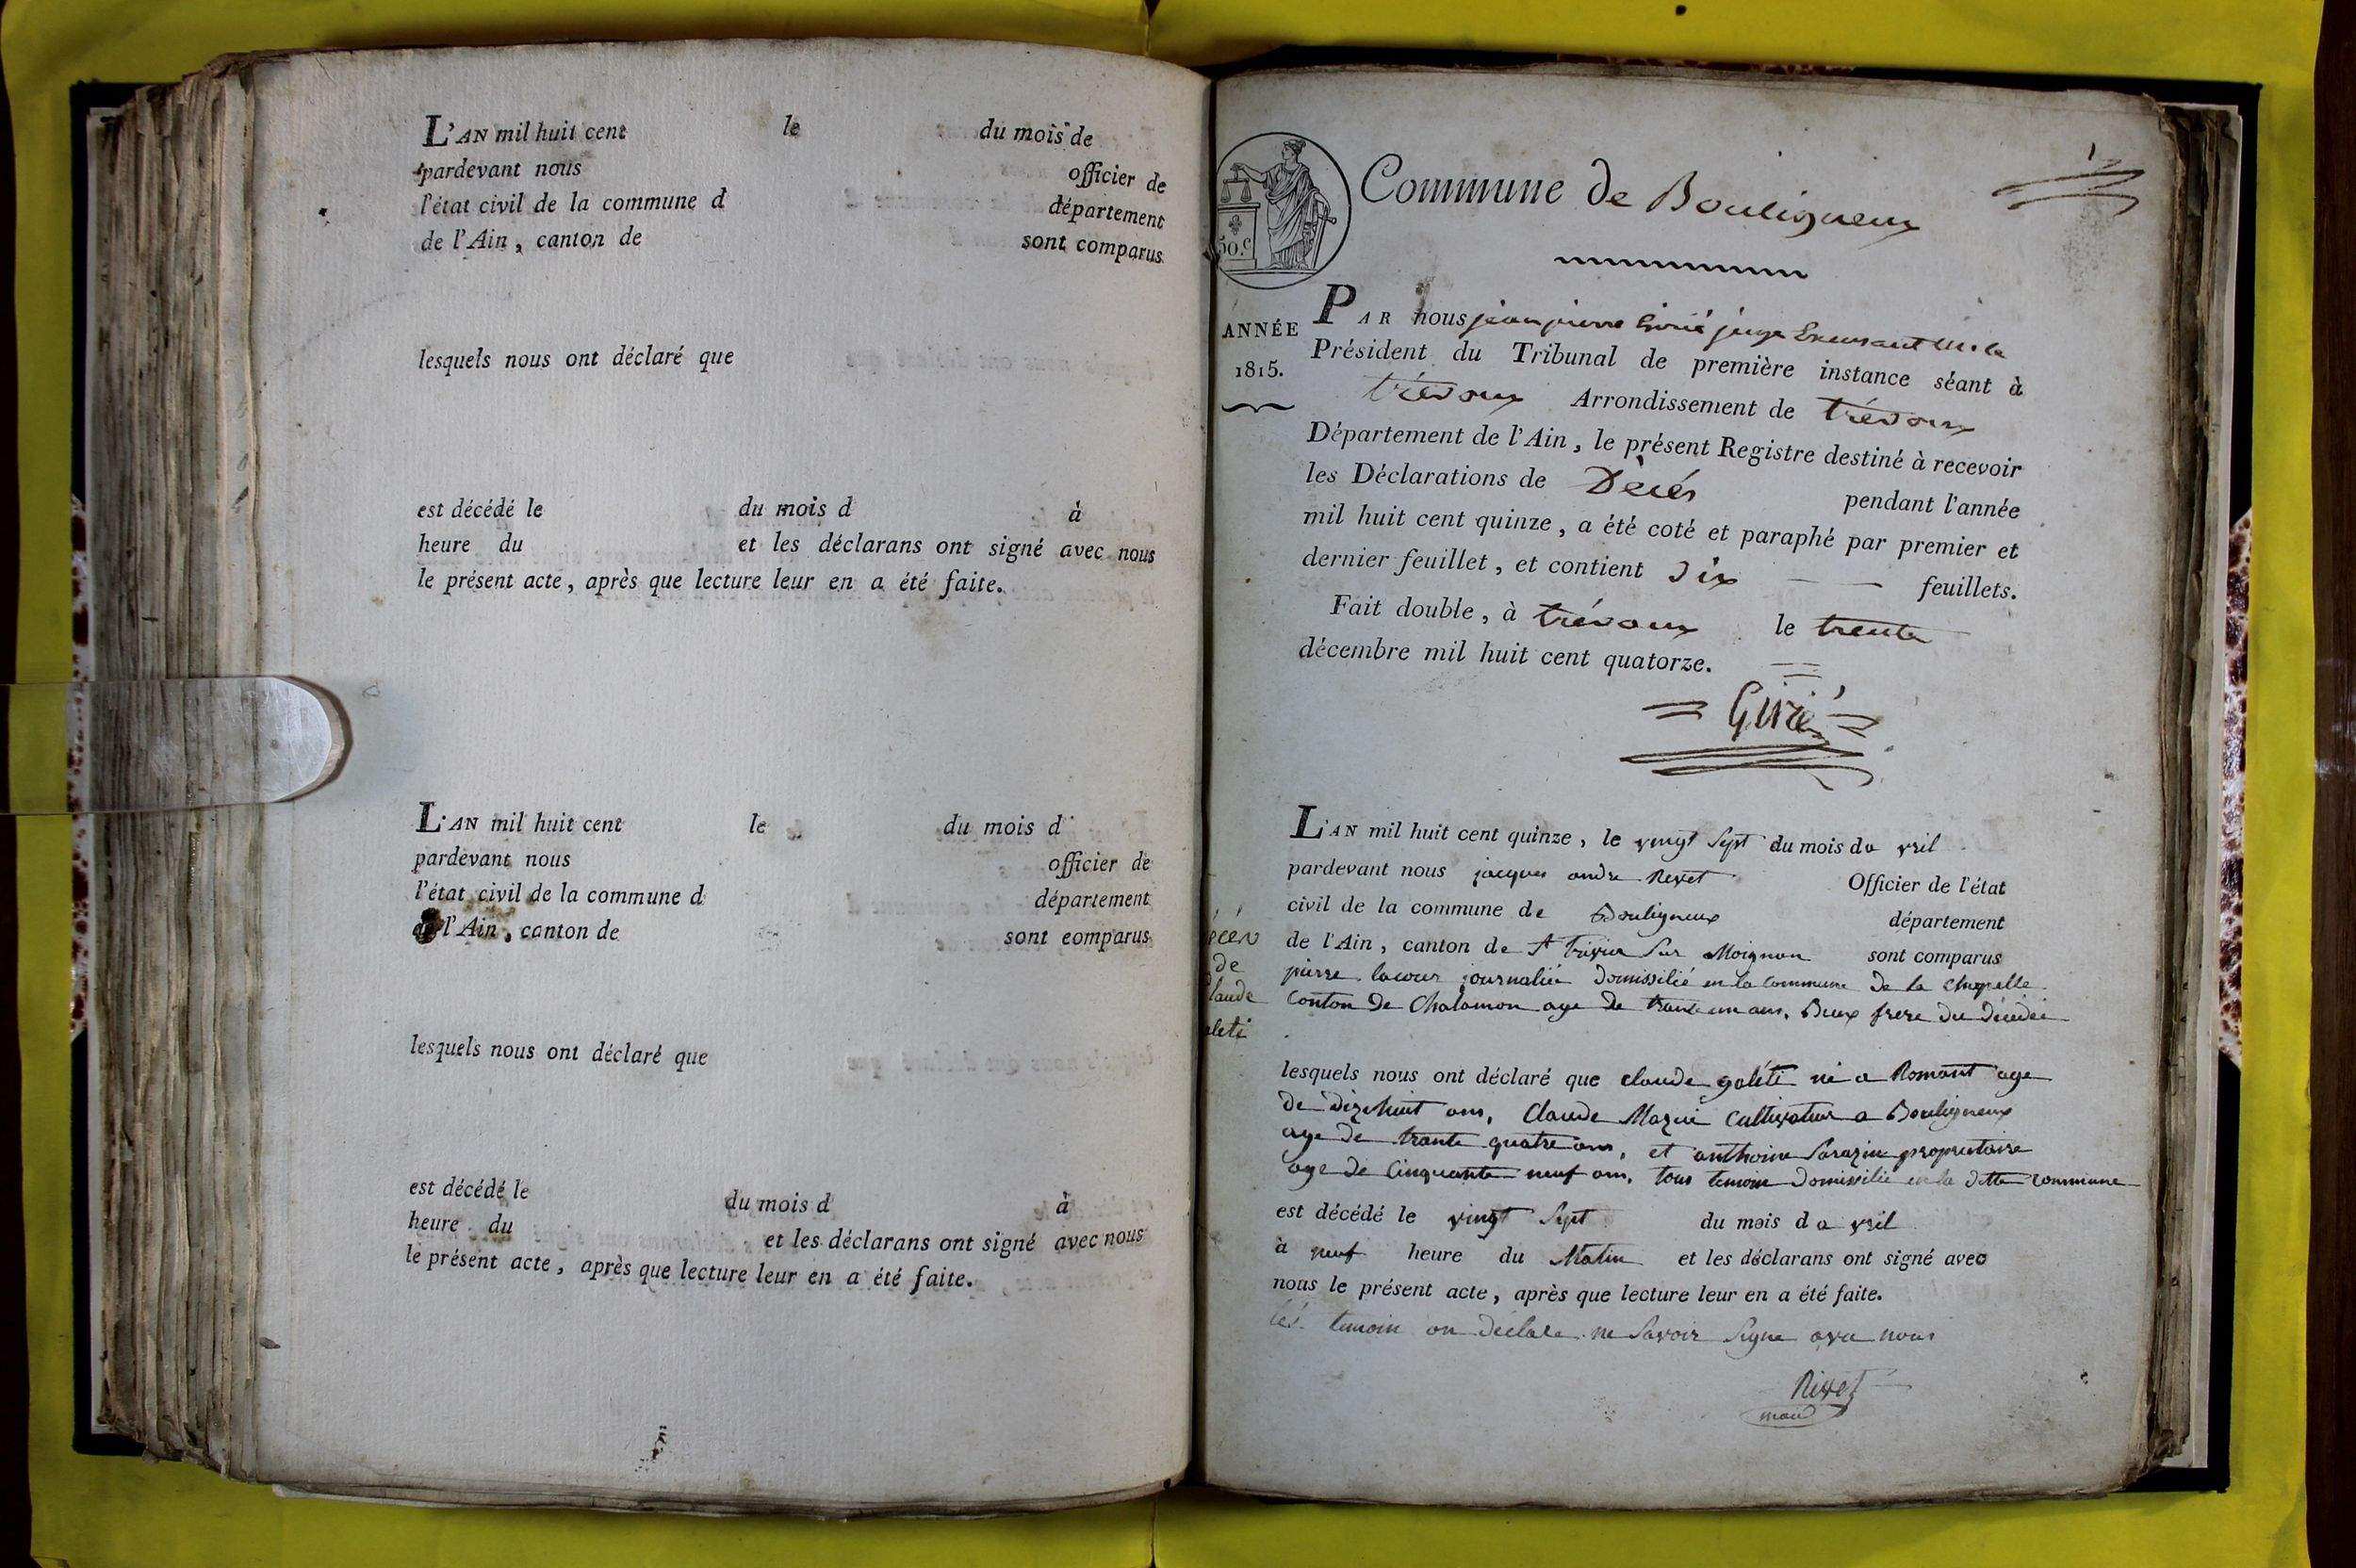 L'AN mil huit cent le du mois de
pardevant nous officier de
l'état civil de la commune d département
de l'Ain, canton de sont comparus
lesquels nous ont déclaré que
est décédé le du mois d à
heure du et les déclarans ont signé avec nous
le présent acte, après que lecture leur en a été faite.
L'AN mil huit cent le du mois d
pardevant nous officier de
l'état civil de la commune d département
de l'Ain, canton de sont comparus
lesquels nous ont déclaré que
est décédé le du mois d à
heure du et les déclarans ont signé avec nous
le présent acte, après que lecture leur en a été faite.
1
50.c
Commune de Bouligneux
ANNÉE
1815.
PAR nous jean pierre Girié juge
Président du Tribunal de première instance séant à
trévoux Arrondissement de trévoux
Département de l'Ain, le présent Registre destiné à recevoir
les Déclarations de Décés pendant l'année
mil huit cent quinze, a été coté et paraphé par premier et
dernier feuillet, et contient Six feuillets.
Fait double, à trévoux le trente
décembre mil huit cent quatorze.
Girié
L'AN mil huit cent quinze, le vingt Sept du mois da vril
pardevant nous jacques andre Rivet Officier de l'état
civil de la commune de Bouligneux département
de l'Ain, canton de St Trivier Sur Moignan sont comparus
pierre lacour journalié domissilié en la commune de la chapelle
Conton de Chalamon age de trante un ans, Beux frere du décédéé
de
laude
leti
lesquels nous ont déclaré que claude goléti né a Romant age
de dizehuit ans, Claude Mazui Cultivateur a Bouligneux
age de trante quatre ans, et anthoine Sarazin proprietaire
age de Cinquante neuf ans, tous temoin domissilié en la ditte commune
est décédé le vingt Sept du mois d a vril
à neuf heure du Matin et les déclarans ont signé avec
nous le présent acte, après que lecture leur en a été faite.
lés temoin on déclare ne Savoir Signe avec nous
Rivet